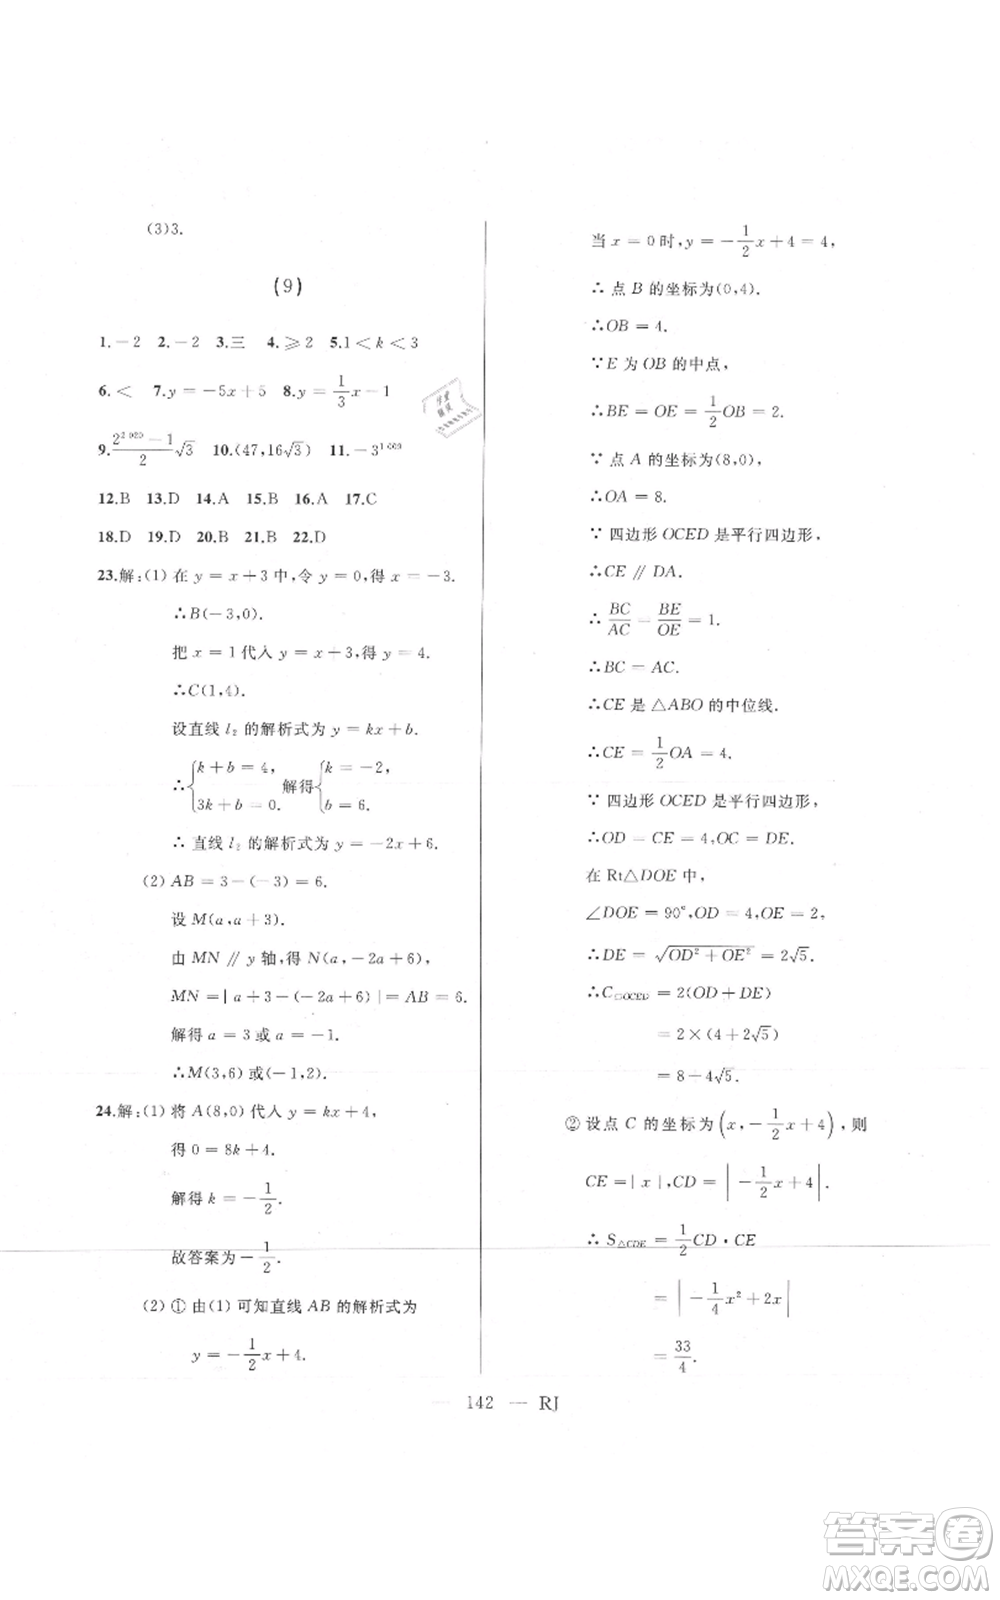 (3)3.
(9)
1.－2 2.－2 3.三 4.⩾2 5.1＜k＜3
6.＜ 7.y＝－5x＋5 8.y＝1/3x－1
9.(2^2 020－1)/2√3 10.(47,16√3) 11.－3^1 009
12.B 13.D 14.A 15.B 16.A 17.C
18.D 19.D 20.B 21.B 22.D
23.解:(1)在 y＝x＋3中,令 y＝0,得 x＝－3.
∴B(－3,0).
把 x＝1代入 y＝x＋3,得 y＝4.
∴C(1,4).
设直线 l₂ 的解析式为 y＝kx＋b.
∴{k＋b＝4, 3k＋b＝0. 解得{k＝－2, b＝6.
∴直线 l₂ 的解析式为 y＝－2x＋6.
(2) AB＝3－(－3)＝6.
设 M(a,a＋3).
由 MN∥y轴,得 N(a,－2a＋6),
MN＝|a＋3－(－2a＋6)|＝AB＝6.
解得 a＝3或 a＝－1.
∴M(3,6)或(－1,2).
24.解:(1)将 A(8,0)代入 y＝kx＋4,
得 0＝8k＋4.
解得 k＝－1/2.
故答案为－1/2.
(2)①由(1)可知直线 AB 的解析式为
y＝－1/2x＋4.
当 x＝0时,y＝－1/2x＋4＝4,
∴点 B 的坐标为(0,4).
∴OB＝4.
∵E 为 OB 的中点,
∴BE＝OE＝1/2OB＝2.
∵点 A 的坐标为(8,0),
∴OA＝8.
∵四边形 OCED 是平行四边形,
∴CE∥DA.
∴BC/AC＝BE/OE＝1.
∴BC＝AC.
∴CE 是△ABO 的中位线.
∴CE＝1/2OA＝4.
∵四边形 OCED 是平行四边形,
∴OD－CE＝4,OC＝DE.
在 Rt△DOE 中,
∠DOE＝90°,OD＝4,OE＝2,
∴DE＝√(OD²＋OE²)＝2√5.
∴C▱OCED＝2(OD＋DE)
＝2×(4＋2√5)
＝8－4√5.
②设点 C 的坐标为(x,－1/2x＋4),则
CE＝|x|,CD＝|－1/2x＋4|.
∴S△CDE＝1/2CD·CE
＝|－1/4x²＋2x|
＝33/4.
— 142 — RJ
答案卷
MXQE.COM